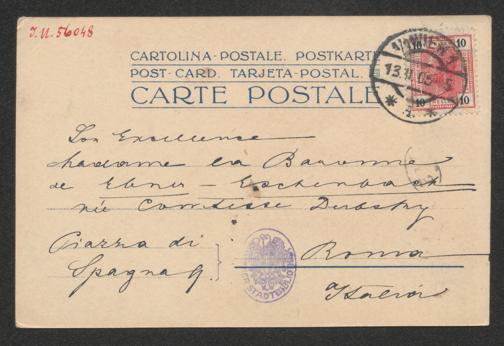 I.N. 56048
CARTOLINA-POSTALE. POSTKARTE
POST-CARD. TARJETA-POSTAL.
CARTE POSTALE
10 10
10 10
1/1 WIEN 1
13. II. 05
Son Excellence
Madame la Baronne
de Ebner - Eschenbach
née Comtesse Dubsky
Piazza di
Spagna 9.
Roma
Italia